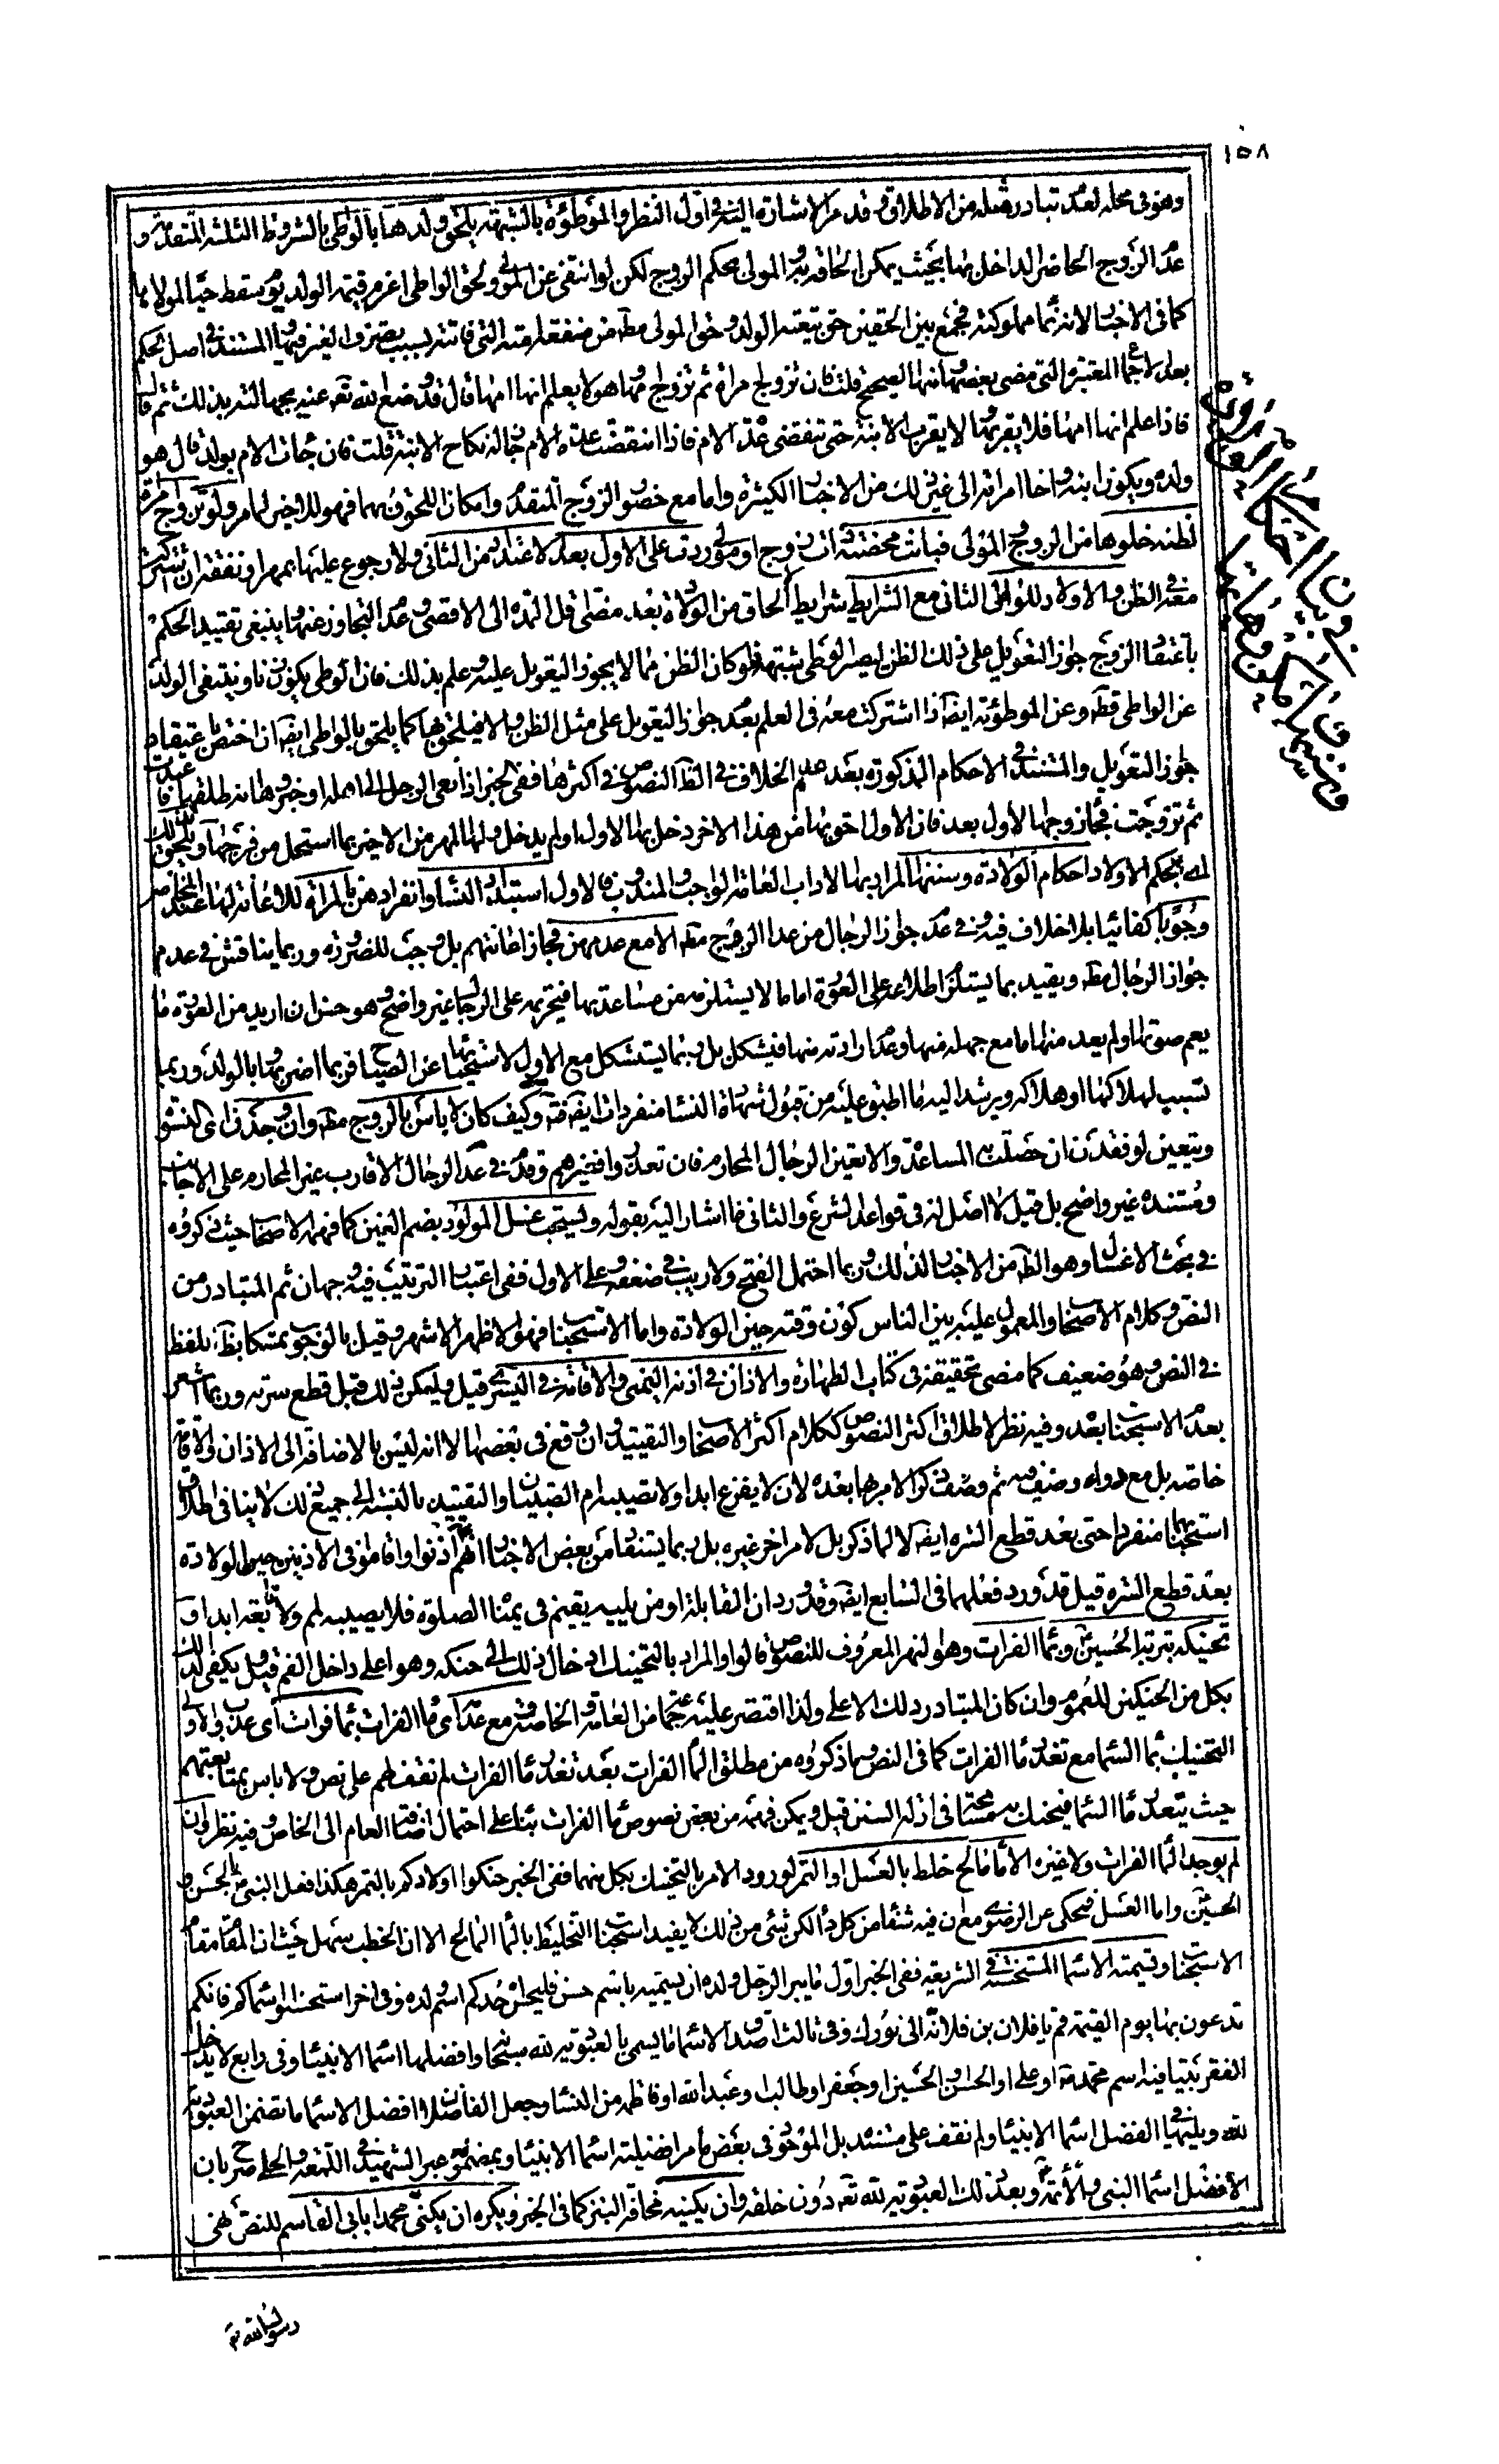 ١٥٨
وهو في محله لعدم تبادر مثله من الاطلاق وقد مر الاشارة اليه في اول النظر والموطوئة بالشبهة يلحق ولدها بالواطي بالشروط الثلثة المتقدمة و
عدم الزوج الحاضر الداخل بها بحيث يمكن الحاقه به والمولى بحكم الزوج لكن لو انتفى عن المولى ولحق الواطي اغرم قيمة الولد يوم سقط حيا لمولاها
كما في الاخبار لانه نماء مملوكته فجمع بين الحقين حق تبعية الولد وحق المولى من منفعة امته التي فاتته بسبب تصرف الغير فيها المستند في اصل الحكم
بعد الاجماع المعتبرة التي مضى بعضها منها الصحيح قلت فان تزوج امراة ثم تزوج امها وهو لا يعلم انها امها قال قد وضع الله تعه عنه بجهالته بذلك ثم قال
فاذا علم انها امها فلا يقربها ولا يقرب الابنة حتى تنقضي عدة الام فاذا انقضت عدة الام حل له نكاح الابنة قلت فان جائت الام بولد قال هو
ولده ويكون ابنه واخا امراته الى غير ذلك من الاخبار الكثيرة واما مع حضور الزوج المتقدم وامكان اللحوق بهما فهو للاخير لما مر ولو تزوج امراة
لظنه خلوها من الزوج والمولى فبانت محصنة اي ذات زوج او مولى ردت على الاول بعد الاعتداد من الثاني ولا رجوع عليها بمهر او نفقة ان تشترك
معه في الظن والاولاد للواطي الثاني مع الشرايط شرايط الحاق من الولادة بعد مضي اقل المدة الى الاقصى وعدم التجاوز عنها وينبغي تقييد الحكم
باعتقاد الزوج جواز التعويل على ذلك الظن ليصير الوطي شبهة فلو كان الظن مما لا يجوز التعويل عليه وعلم بذلك فان الوطي يكون زنا وينتفي الولد
عن الواطي قطعا وعن الموطوئة ايضا اذا اشتركت معه في العلم بعدم جواز التعويل على مثل الظن والا فيلحق بها كما يلحق بالواطي ايضا ان اختص باعتقاد
جواز التعويل والمستند في الاحكام المذكورة بعد عدم الخلاف في الظ النصوص في اكثرها ففي الخبر اذا نعي الرجل الى اهله او خبروها انه طلقها فاعتدت
ثم تزوجت فجاء زوجها الاول بعد فان الاول احق بها من هذا الاخر دخل بها الاول او لم يدخل ولها المهر من الاخير بما استحل من فرجها ويلحق بذلك
احكام الاولاد احكام الولادة وسننها المراد بها الاداب العامة للواجب والمندوب فالاول استبداد النساء وانفرادهن بالمراة للاعانة لها عند المخاض
وجوبا كفائيا بلا خلاف فيه وفي عدم جواز الرجال من عدا الزوج مط الا مع عدمهن فجاز اعانتهم بل وجب للضرورة وربما يناقش في عدم
جواز الرجال مط ويقيد بما يستلزم اطلاعهم على العورة اما ما لا يستلزمه من مساعدتها فتحريمه على الرجال غير واضح وهو حسن ان اريد من العورة ما
يعم صوتها ولم يعد منها اما مع جعله منها وعدم ارادته منها فيشكل بل ربما يستشكل مع الاول لاستحيائها عن الصياح فربما اضر بها وبالولد وربما
تسبب لهلاكها او هلاكه ويرشد اليه ما اطبق عليه من قبول شهادة النساء منفردات ايضا فتد وكيف كان لا باس بالزوج مط وان وجدن اي النسوة
ويتعين لو فقدن ان حصلت به المساعدة والا تعين الرجال المحارم فان تعذروا فغيرهم وقدم في عد الرجال الاقارب غير المحارم على الاجانب
ومستنده غير واضح بل قيل لا اصل له في قواعد الشرع والثاني ما اشار اليه بقوله ويستحب غسل المولود بضم الغين كما فهمه الاصحاب حيث ذكروه
في بحث الاغسال وهو الظ من الاخبار لذلك وربما احتمل الفتح ولا ريب في ضعفه وعلى الاول ففي اعتبار الترتيب فيه وجهان ثم المتبادر من
النص وكلام الاصحاب والمعمول عليه بين الناس كون وقته حين الولادة واما الاستحباب فهو الاظهر الاشهر وقيل بالوجوب تمسكا بظ بلفظ
في النص وهو ضعيف كما مضى تحقيقه في كتاب الطهارة والاذان في اذنه اليمنى والاقامة في اليسرى قيل وليكن ذلك قبل قطع سرته وربما اشعر
بعدم الاستحباب بعد وفيه نظر لاطلاق اكثر النصوص ككلام اكثر الاصحاب والتقييد وان وقع في بعضها الا انه ليس بالاضافة الى الاذان والاقامة
خاصة بل مع دواء وصف فيه ثم وصف ذكر الامر بها بعده لان لا يفزع ابدا ولا تصيبه ام الصبيان والتقييد بالنسبة الى جميع ذلك لا ينافي اطلاق
استحبابهما منفردا حتى بعد قطع السرة ايضا لا لما ذكر بل لامر اخر غيره بل ربما يستفاد من بعض الاخبار انهم اذنوا واقاموا في الاذنين حين الولادة
بعد قطع السرة قيل قد ورد فعلهما في السابع ايضا وقد ورد ان القابلة او من يليه يقيم في يمناه الصلوة فلا يصيبه لمم ولا تابعة ابدا و
تحنيكه بتربة الحسين ع وبماء الفرات وهو النهر المعروف للنصوص قالوا والمراد بالتحنيك ادخال ذلك الى حنكه وهو اعلى داخل الفم قيل ويكفي الدلك
بكل من الحنكين للعموم وان كان المتبادر دلك الاعلى ولذا اقتصر عليه جماعة من العامة والخاصة ومع عدم اي ماء الفرات بماء فرات اي عذب والاولى
التحنيك بماء السماء مع تعذر ماء الفرات كما في النص وما ذكروه من مطلق الماء الفرات بعد تعذر ماء الفرات لم نقف لهم على نص ولا باس بمتابعتهم
حيث يتعذر ماء السماء فيحنك به مسامحة في ادلة السنن قيل ويمكن فهمه من بعض نصوص ماء الفرات بناء على احتمال اضافة العام الى الخاص وفيه نظر وان
لم يوجد الماء الفرات ولا غيره الا ماء مالح خلط بالعسل او التمر لورود الامر بالتحنيك بكل منهما ففي الخبر حنكوا اولادكم بالتمر هكذا فعل النبي ص بالحسن و
الحسين واما العسل فحكي عن الرضوي مع ان فيه شفاء من كل داء لكن شيء من ذلك لا يفيد استحباب التخليط بالماء المالح الا ان الخطب سهل حيث ان المقام مقام
الاستحباب وتسميته الاسماء المستحسنة في الشريعة ففي الخبر اول ما يبر الرجل ولده ان يسميه باسم حسن فليحسن احدكم اسم ولده وفي اخر استحسنوا اسماءكم فانكم
تدعون بها يوم القيمة قم يا فلان بن فلان الى نورك وفي ثالث اصدق الاسماء ما يسمى بالعبودية لله سبحانه وافضلها اسماء الانبياء وفي رابع لا يدخل
الفقر بيتا فيه اسم محمد ص او علي او الحسن والحسين او جعفر او طالب او عبدالله او فاطمة من النساء وجعل الفاضلان افضل الاسماء ما تضمن العبودية
لله ويليها في الفضل اسماء الانبياء ولم نقف على مستنده بل الموجود في بعض ما مر افضلية اسماء الانبياء وبمضمونه عبر الشهيد في اللمعة والحلي صرح بان
الافضل اسماء النبي والائمة ع وبعد ذلك العبودية لله تعه دون خلقه وان يكنيه مخافة النبز كما في الخبر ويكره ان يكنى محمدا بابي القاسم للنص نهى
رسول الله ص